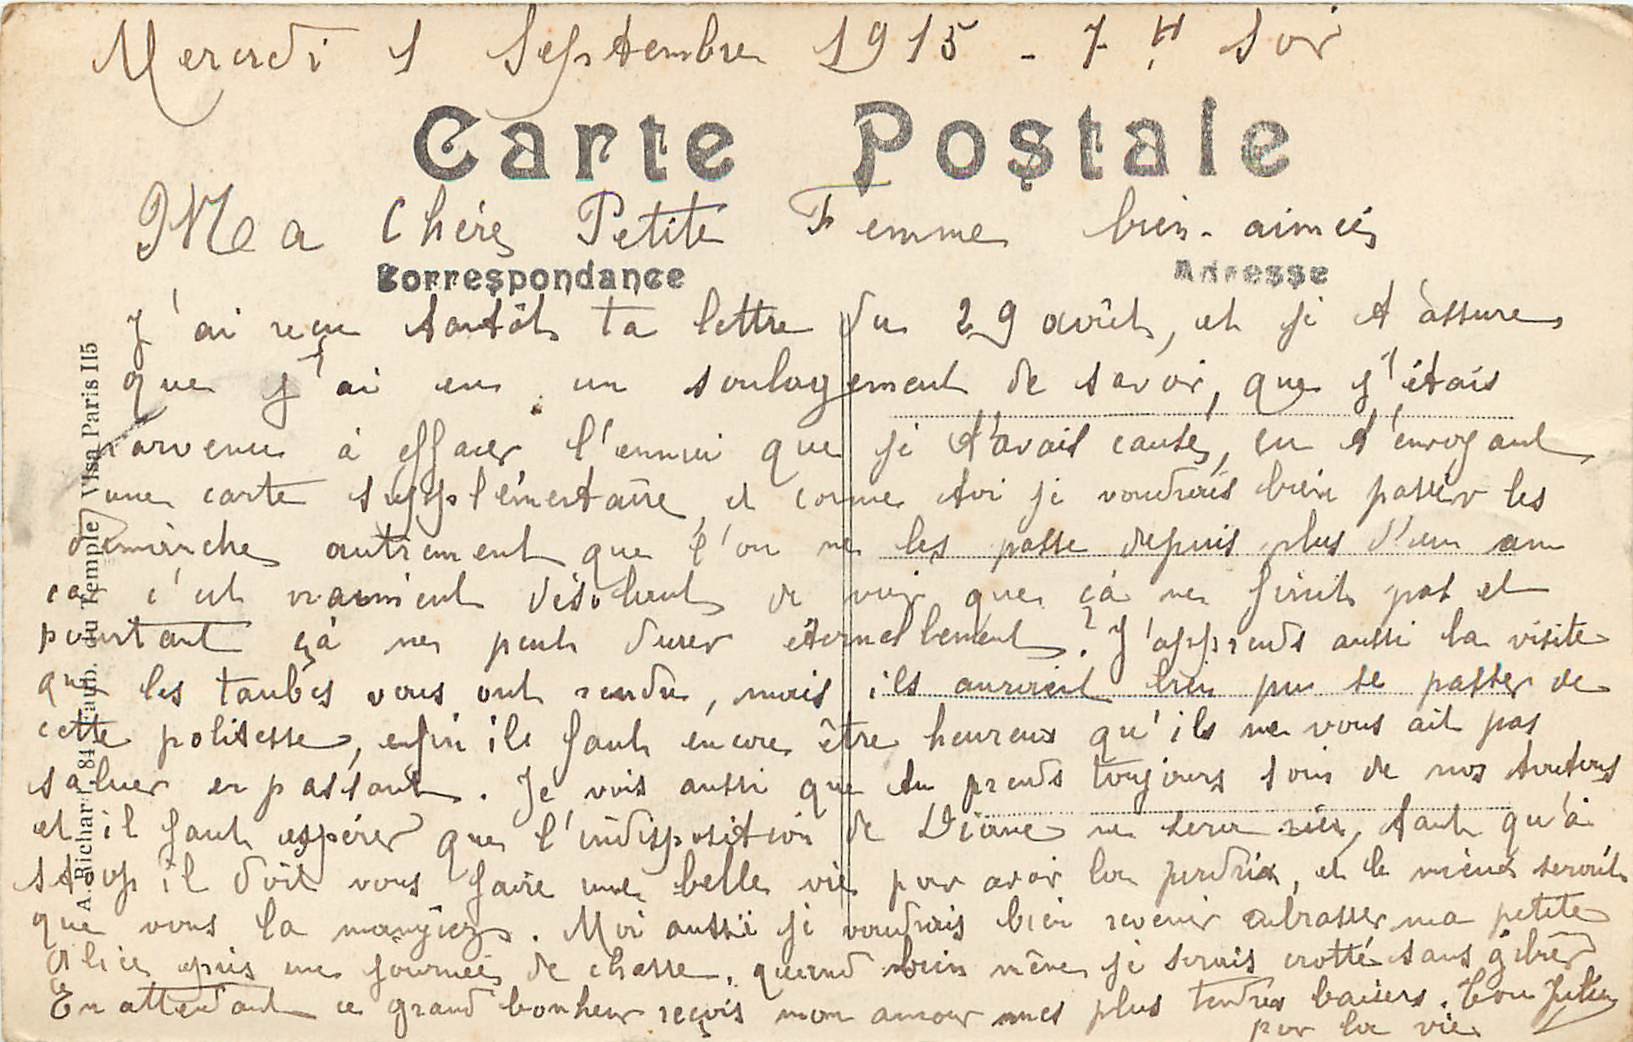 Mercredi 1 Septembre 1915 - 7 H Soir
Carte Postale
Ma Chère Petite Femme bien-aimée
Correspondance
Adresse
J'ai reçu tantôt ta lettre du 29 août, et je t'assure
que j'ai eu un soulagement de savoir, que j'étais
parvenu à effacer l'ennui que je t'avais causé, en t'envoyant
une carte supplémentaire, et comme toi je voudrais bien passer les
dimanche autrement que l'on ne les passe depuis plus d'un an
car c'est vraiment désolant de voir que çà ne finit pas et
pourtant çà ne peut durer éternellement ? J'apprends aussi la visite
que les taubes vous ont rendu, mais ils auraient bien pu se passer de
cette politesse, enfin il faut encore être heureux qu'ils ne vous ait pas
saluer en passant. Je vois aussi que tu prends toujours soin de nos toutous
et il faut espérer que l'indisposition de Diane ne sera rien, tant qu'à
stop il doit vous faire une belle vie pour avoir la perdrix, et le mieux serait
que vous la mangiez. Moi aussi je voudrais bien revenir embrasser ma petite
Alice après une journée de chasse, quand bien même je serais crotté sans gibier
En attendant ce grand bonheur reçois mon amour mes plus tendres baisers. Ton Julien
pour la vie
A. Richard, 84 Faub. du Temple Visa Paris 115